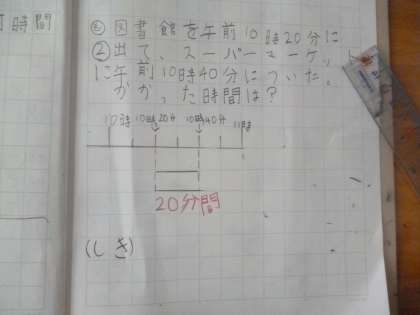 時間
め 図書館を午前10時20分に
②出て、スーパーマーケット
に午前10時40分についた。
かかった時間は?
10時 10時20分 10時40分 11時
20分間
(しき)